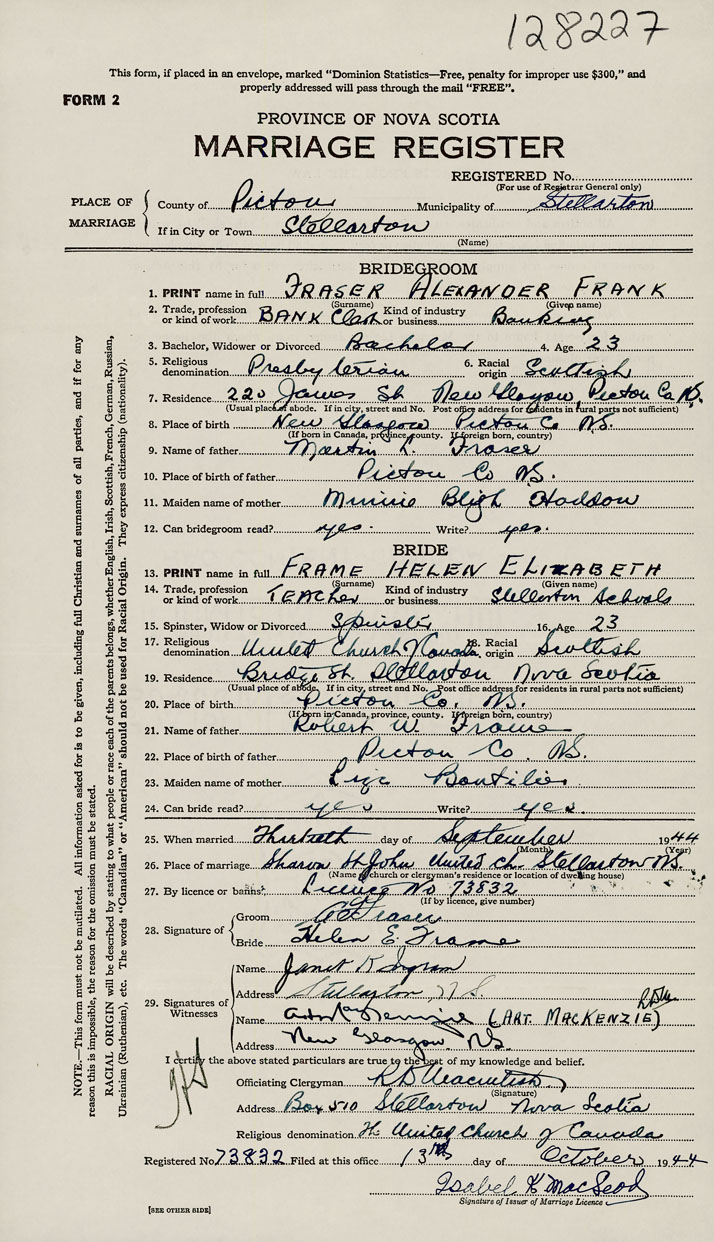 128227
This form, if placed in an envelope, marked "Dominion Statistics—Free, penalty for improper use $300," and
properly addressed will pass through the mail "FREE".
FORM 2
PROVINCE OF NOVA SCOTIA
MARRIAGE REGISTER
REGISTERED No.
(For use of Registrar General only)
PLACE OF MARRIAGE
County of Pictou Municipality of Stellarton
If in City or Town Stellarton
(Name)
BRIDEGROOM
1. PRINT name in full FRASER ALEXANDER FRANK
(Surname) (Given name)
2. Trade, profession or kind of work BANK Clerk Kind of industry or business Banking
3. Bachelor, Widower or Divorced Bachelor 4. Age 23
5. Religious denomination Presbyterian 6. Racial origin Scottish
7. Residence 220 James St New Glasgow, Pictou Co N.S.
(Usual place of abode. If in city, street and No. Post office address for residents in rural parts not sufficient)
8. Place of birth New Glasgow Pictou Co N.S.
(If born in Canada, province, county. If foreign born, country)
9. Name of father Martin L. Fraser
10. Place of birth of father Pictou Co N.S.
11. Maiden name of mother Minnie Bligh Haddow
12. Can bridegroom read? yes. Write? yes.
BRIDE
13. PRINT name in full FRAME HELEN ELIZABETH
(Surname) (Given name)
14. Trade, profession or kind of work TEAcher Kind of industry or business Stellarton Schools
15. Spinster, Widow or Divorced Spinster 16. Age 23
17. Religious denomination United Church Canada 18. Racial origin Scottish
19. Residence Bridge St. Stellarton Nova Scotia
(Usual place of abode. If in city, street and No. Post office address for residents in rural parts not sufficient)
20. Place of birth Pictou Co. N.S.
(If born in Canada, province, county. If foreign born, country)
21. Name of father Robert W. Frame
22. Place of birth of father Pictou Co. N.S.
23. Maiden name of mother
24. Can bride read? yes Write? yes.
25. When married Thirtieth day of September 1944
(Month) (Year)
26. Place of marriage Sharon St John United Ch. Stellarton N.S.
(Name of church or clergyman's residence or location of dwelling house)
27. By licence or banns? Licence No 73832
(If by licence, give number)
28. Signature of Groom A F Fraser
Bride Helen E. Frame
29. Signatures of Witnesses
Name Janet K Ingram
Address Stellarton, N.S.
Name (ART. MACKENZIE)
Address New Glasgow. N.S.
I certify the above stated particulars are true to the best of my knowledge and belief.
Officiating Clergyman
(Signature)
Address Box 510 Stellarton Nova Scotia
Religious denomination United Church of Canada
Registered No. 73832 Filed at this office 13th day of October 1944
Isabel K MacLeod
Signature of Issuer of Marriage Licence
[SEE OTHER SIDE]
NOTE.—This form must not be mutilated. All information asked for is to be given, including full Christian and surnames of all parties, and if for any
reason this is impossible, the reason for the omission must be stated.
RACIAL ORIGIN will be described by stating to what people or race each of the parents belongs, whether English, Irish, Scottish, French, German, Russian,
Ukrainian (Ruthenian), etc. The words "Canadian" or "American" should not be used for Racial Origin. They express citizenship (nationality).